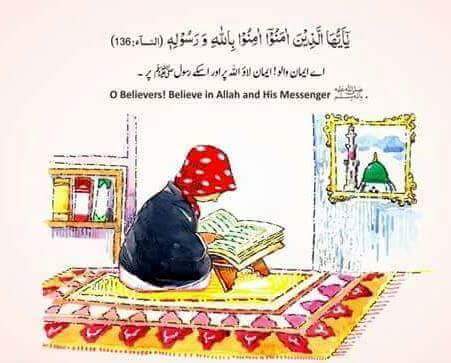 يٰٓاَيُّهَا الَّذِيْنَ اٰمَنُوْٓا اٰمِنُوْا بِاللّٰهِ وَ رَسُوْلِهٖ (النسآء:136)
اے ایمان والو! ایمان لاؤ اللہ پر اور اسکے رسول ﷺ پر ۔
O Believers! Believe in Allah and His Messenger ﷺ .